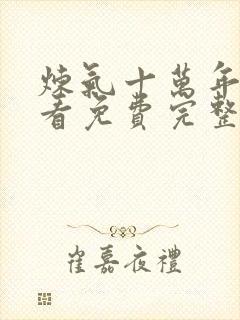 煉氣十萬年
看免費完整
崔嘉夜禮